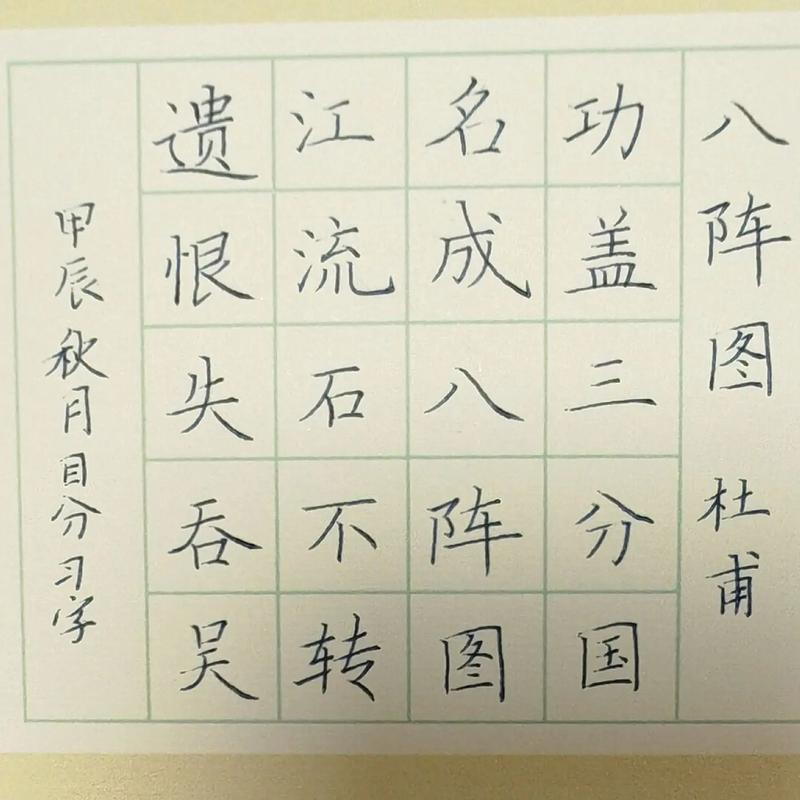 八阵图 杜甫
功盖三分国
名成八阵图
江流石不转
遗恨失吞吴
甲辰秋月目分习字